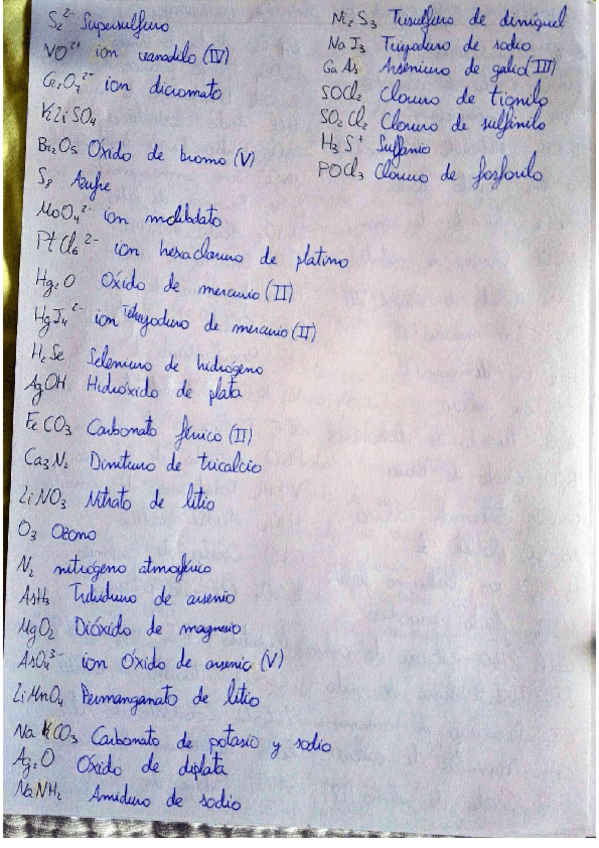 S₂²⁻ Supersulfuro
VO²⁺ ion vanadilo (IV)
Cr₂O₇²⁻ ion dicromato
KLiSO₄
Br₂O₅ Óxido de bromo (V)
S₈ Azufre
MoO₄²⁻ ion molibdato
PtCl₆²⁻ ion hexacloruro de platino
Hg₂O Óxido de mercurio (II)
HgI₄²⁻ ion Tetrayoduro de mercurio (II)
H₂Se Seleniuro de hidrógeno
AgOH Hidróxido de plata
FeCO₃ Carbonato férrico (II)
Ca₃N₂ Dinitruro de tricalcio
LiNO₃ Nitrato de litio
O₃ Ozono
N₂ nitrógeno atmosférico
AsH₃ Trihidruro de arsenio
MgO₂ Dióxido de magnesio
AsO₄³⁻ ion Óxido de arsenic (V)
LiMnO₄ Permanganato de litio
NaKCO₃ Carbonato de potasio y sodio
Ag₂O Oxido de diplata
NaNH₂ Amiduro de sodio
Ni₂S₃ Trisulfuro de diniquel
NaI₃ Triyoduro de sodio
GaAs Arseniuro de galio (III)
SOCl₂ Cloruro de tionilo
SO₂Cl₂ Cloruro de sulfinilo
H₃S⁺ Sulfonio
POCl₃ Cloruro de fosforilo